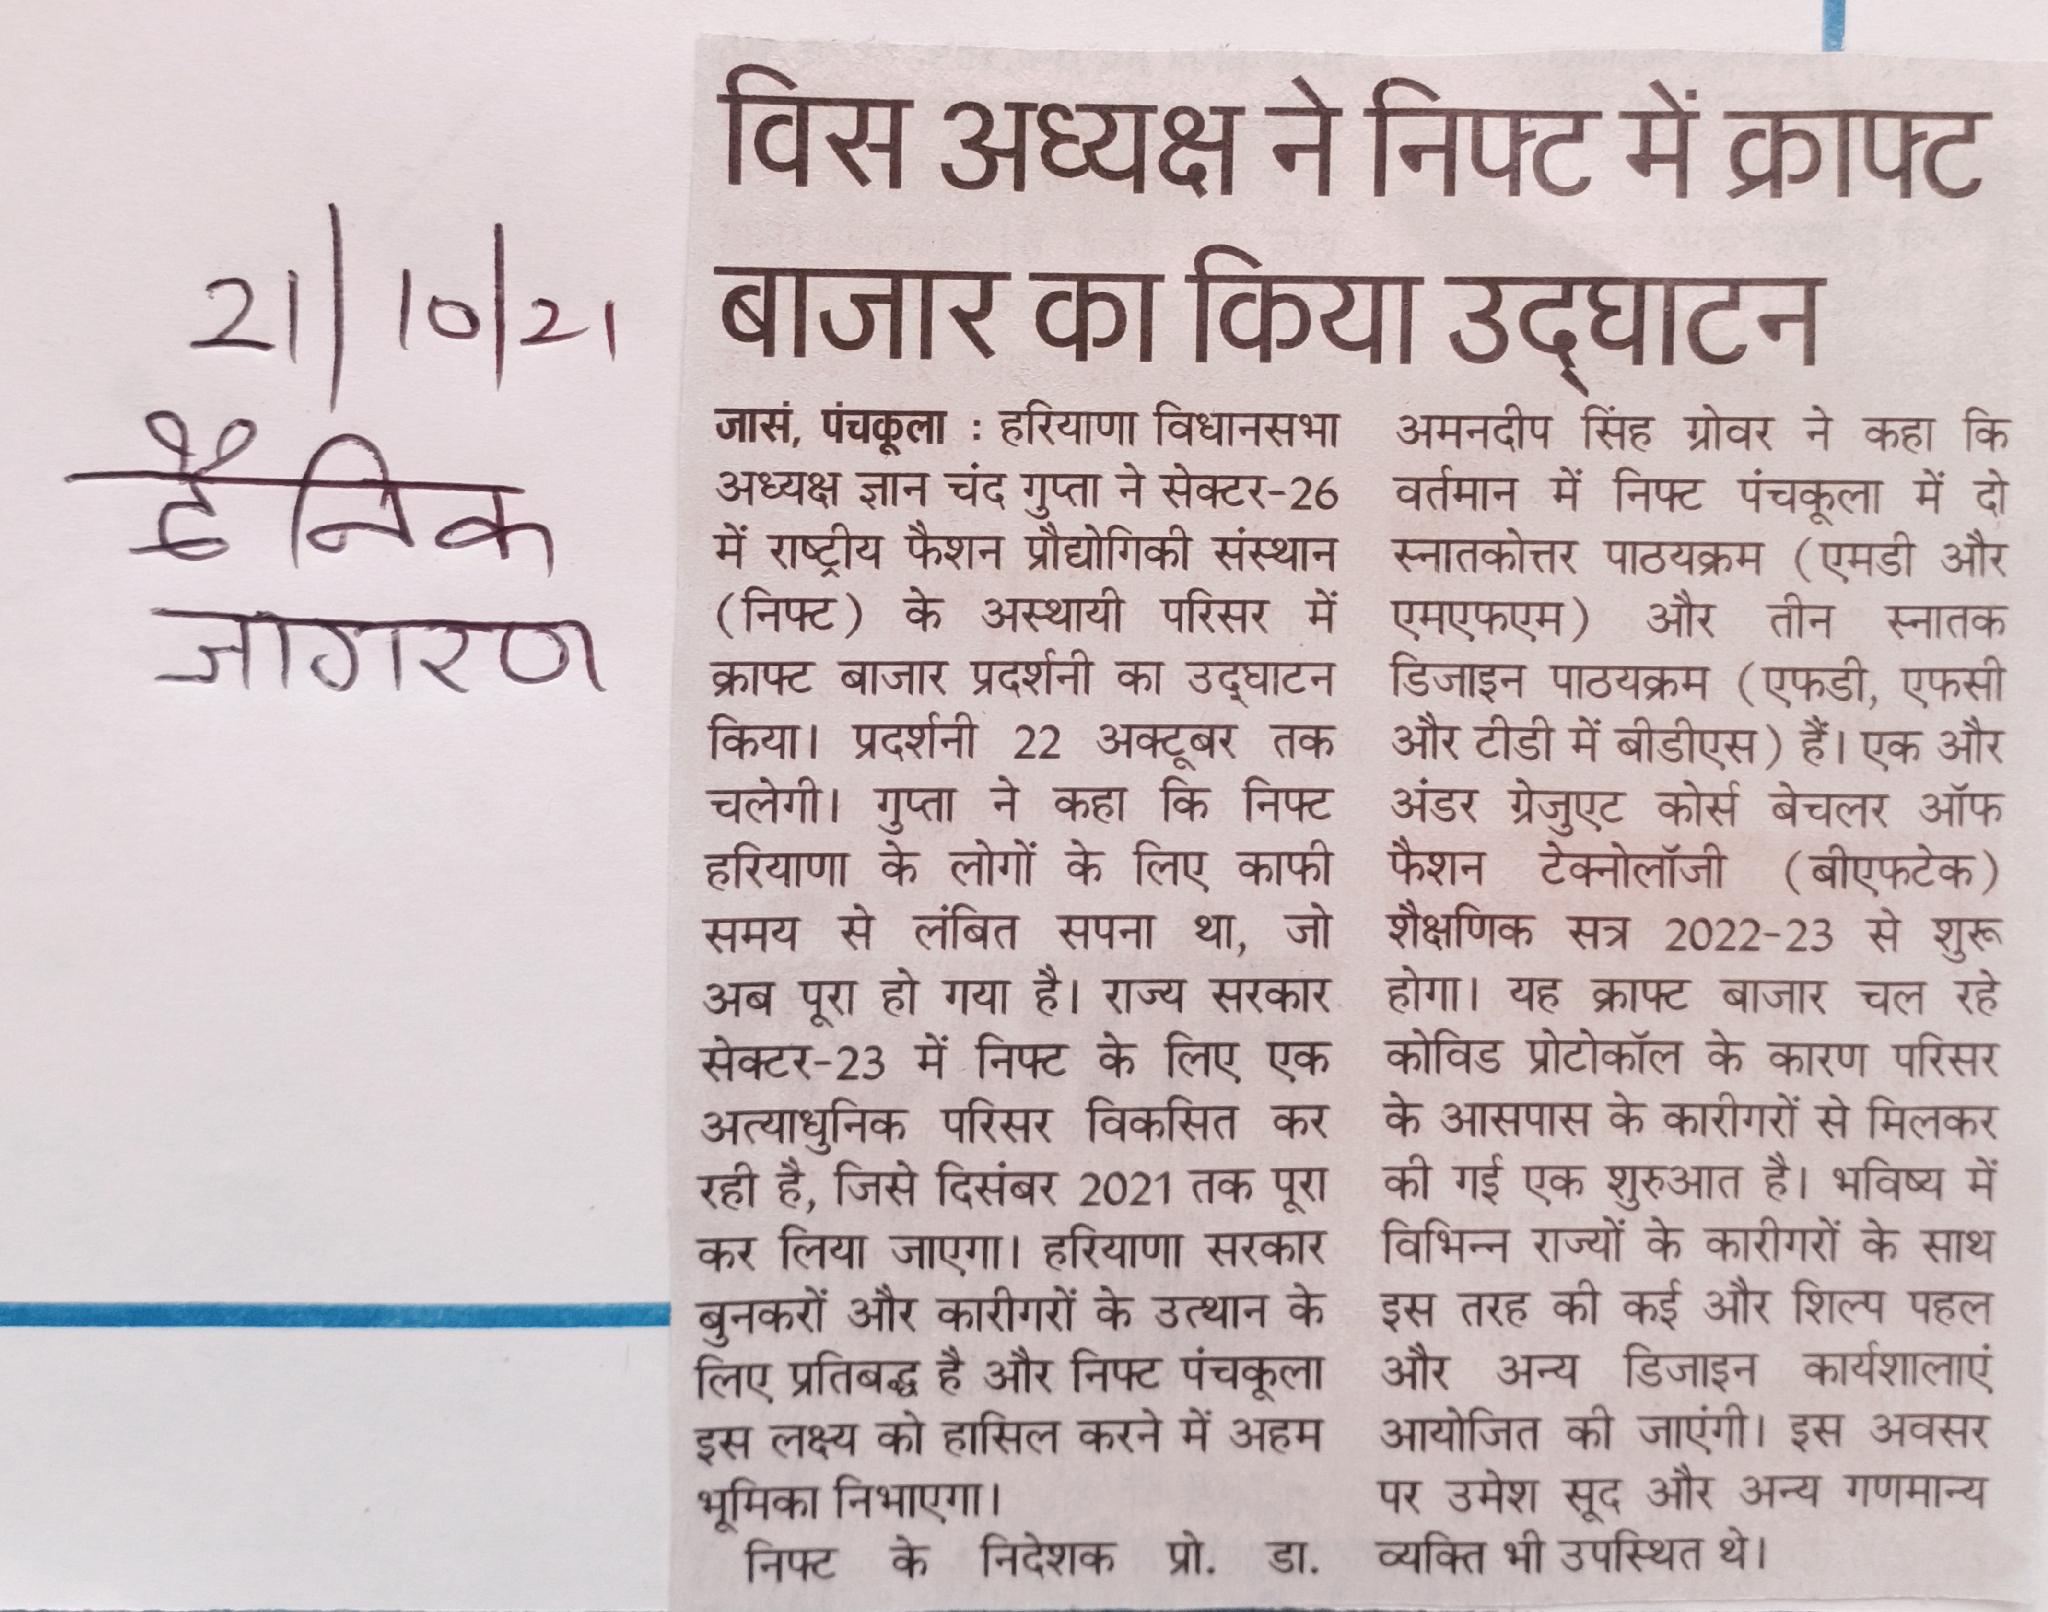 21/10/21
दैनिक
जागरण
विस अध्यक्ष ने निफ्ट में क्राफ्ट
बाजार का किया उद्घाटन
जासं, पंचकूला : हरियाणा विधानसभा
अध्यक्ष ज्ञान चंद गुप्ता ने सेक्टर-26
में राष्ट्रीय फैशन प्रौद्योगिकी संस्थान
(निफ्ट) के अस्थायी परिसर में
क्राफ्ट बाजार प्रदर्शनी का उद्घाटन
किया। प्रदर्शनी 22 अक्टूबर तक
चलेगी। गुप्ता ने कहा कि निफ्ट
हरियाणा के लोगों के लिए काफी
समय से लंबित सपना था, जो
अब पूरा हो गया है। राज्य सरकार
सेक्टर-23 में निफ्ट के लिए एक
अत्याधुनिक परिसर विकसित कर
रही है, जिसे दिसंबर 2021 तक पूरा
कर लिया जाएगा। हरियाणा सरकार
बुनकरों और कारीगरों के उत्थान के
लिए प्रतिबद्ध है और निफ्ट पंचकूला
इस लक्ष्य को हासिल करने में अहम
भूमिका निभाएगा।
निफ्ट के निदेशक प्रो. डा.
अमनदीप सिंह ग्रोवर ने कहा कि
वर्तमान में निफ्ट पंचकूला में दो
स्नातकोत्तर पाठयक्रम (एमडी और
एमएफएम) और तीन स्नातक
डिजाइन पाठयक्रम (एफडी, एफसी
और टीडी में बीडीएस) हैं। एक और
अंडर ग्रेजुएट कोर्स बेचलर ऑफ
फैशन टेक्नोलॉजी (बीएफटेक)
शैक्षणिक सत्र 2022-23 से शुरू
होगा। यह क्राफ्ट बाजार चल रहे
कोविड प्रोटोकॉल के कारण परिसर
के आसपास के कारीगरों से मिलकर
की गई एक शुरुआत है। भविष्य में
विभिन्न राज्यों के कारीगरों के साथ
इस तरह की कई और शिल्प पहल
और अन्य डिजाइन कार्यशालाएं
आयोजित की जाएंगी। इस अवसर
पर उमेश सूद और अन्य गणमान्य
व्यक्ति भी उपस्थित थे।